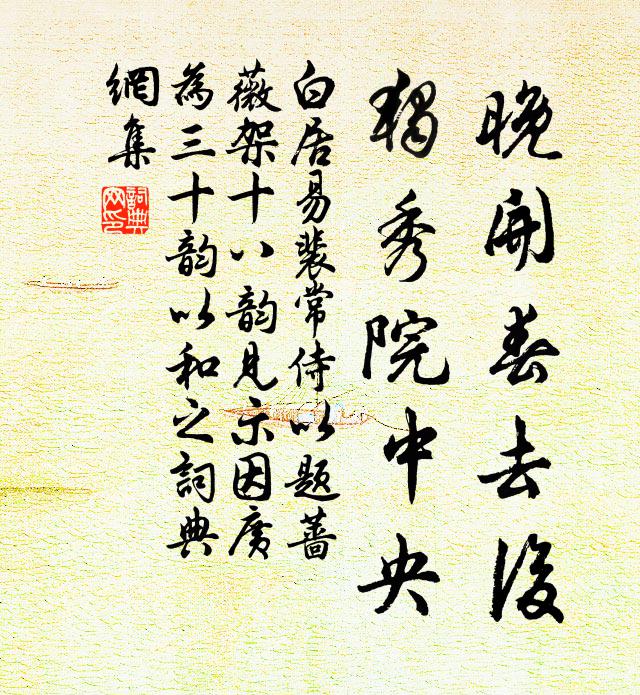 晚開春去後
獨秀院中央
白居易裴常侍以題薔
薇架十八韵見示因廣
為三十韵以和之詞典
網集
詞典
网印